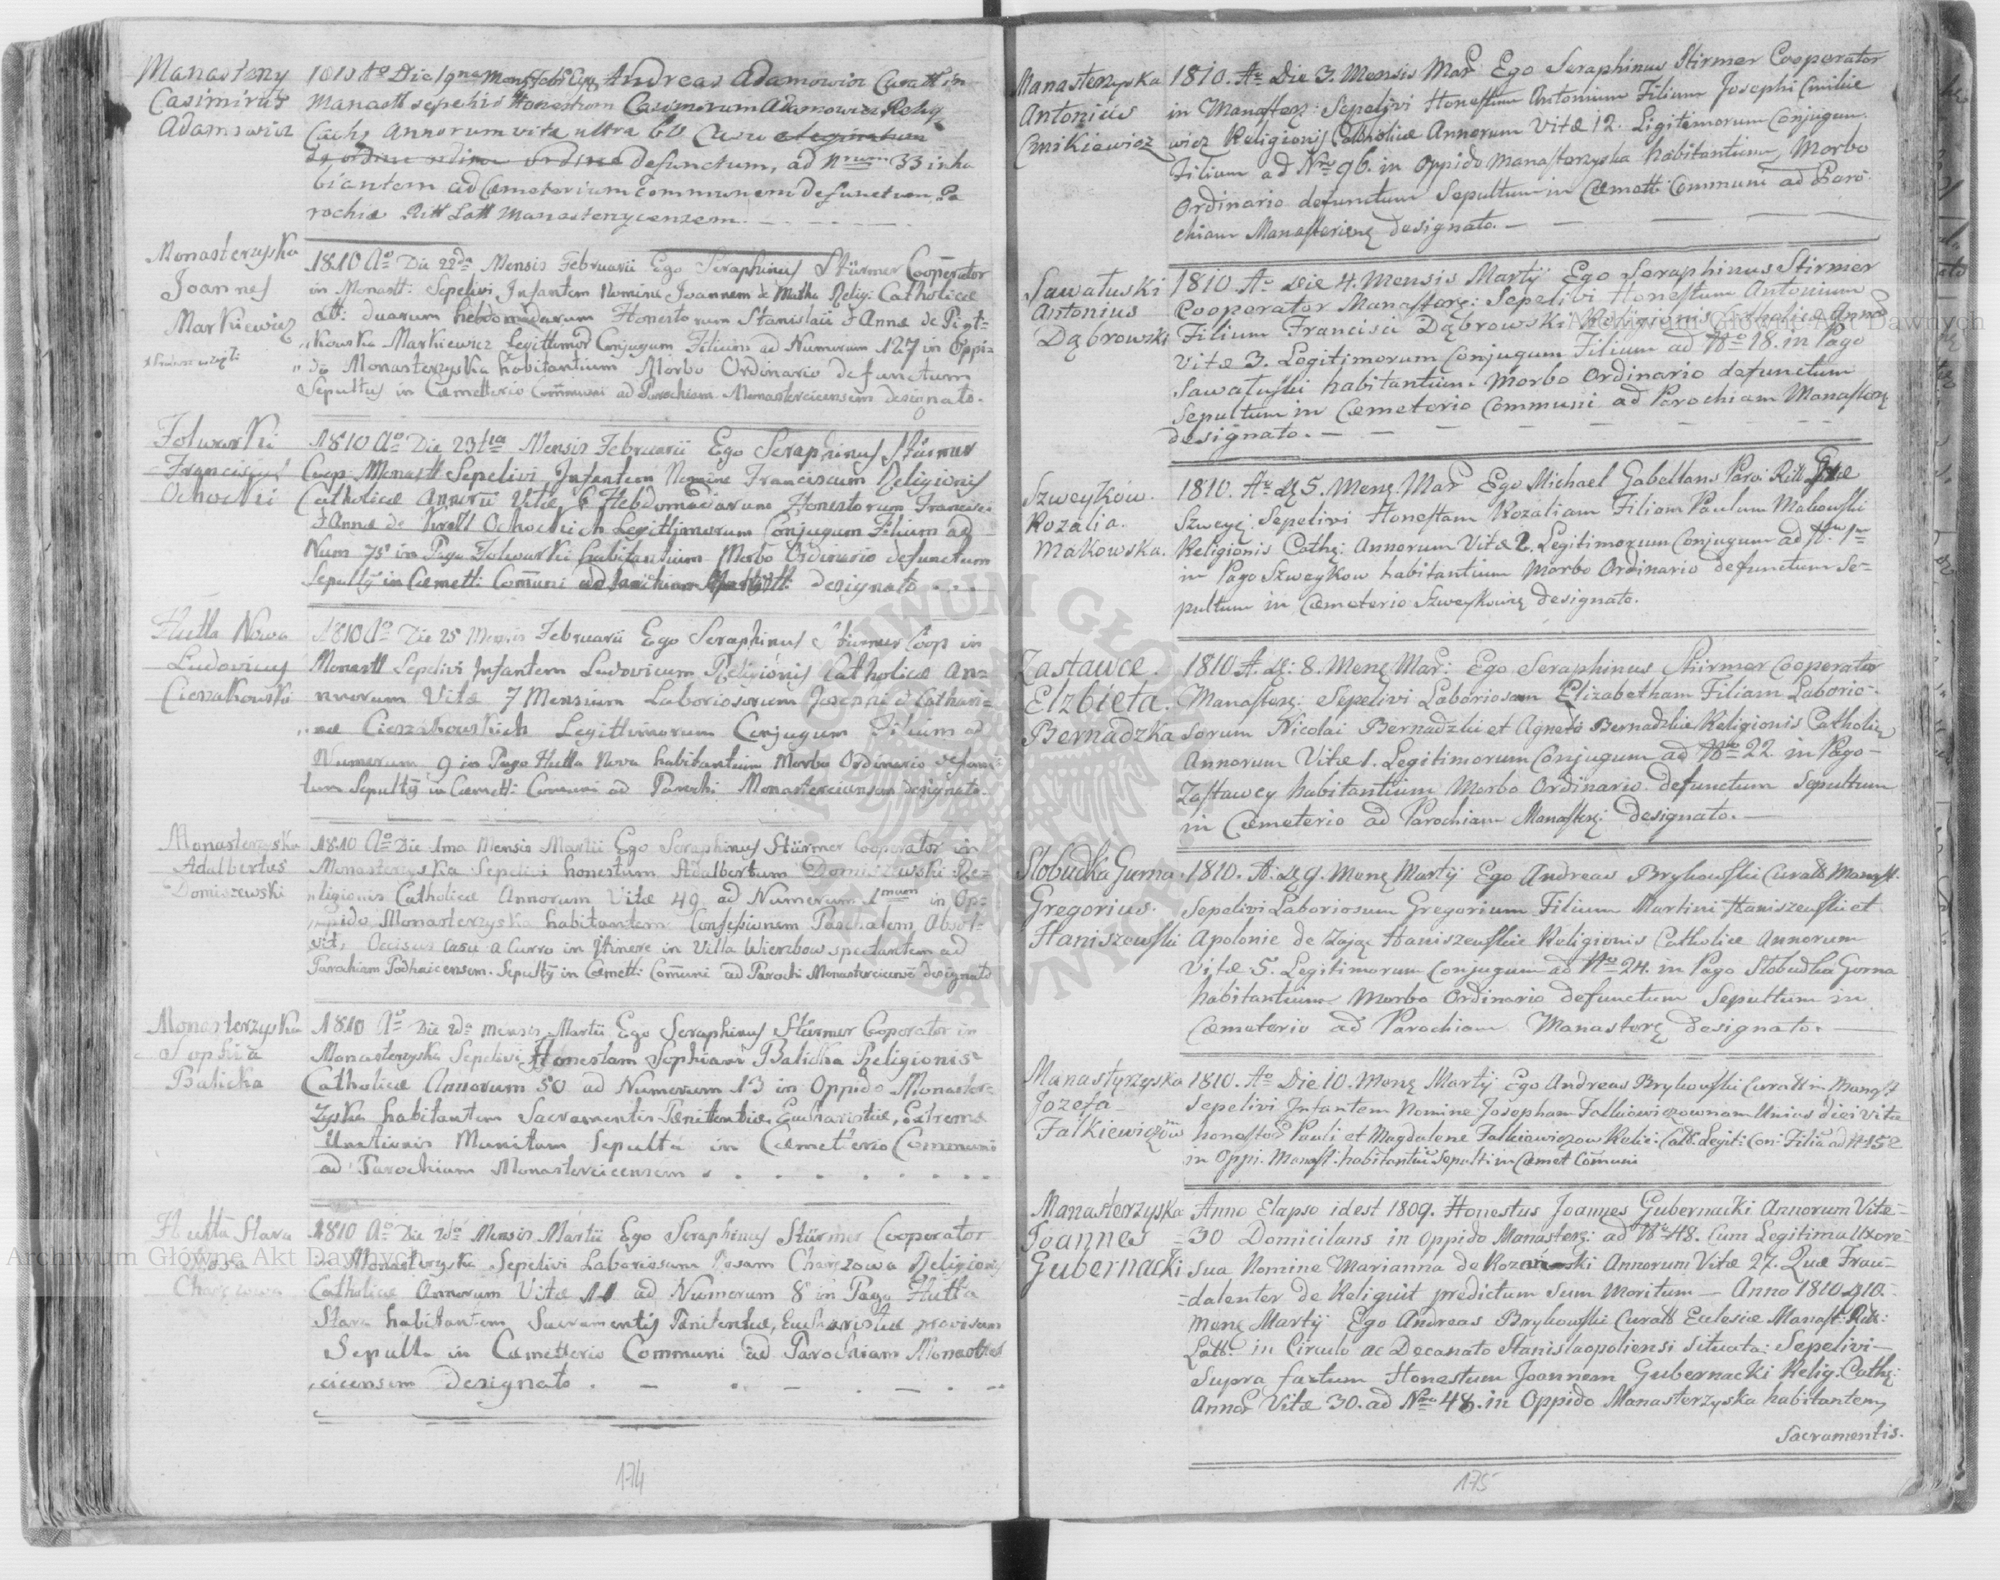 Manasteny
Casimirus
Adamowicz
1810 Ao Die 19na Mens Febr Ego Andreas Adamowicz Curatt in
Manastt sepelivi Honestum Casimirum Adamowicz Relig
Cath; Annorum vitæ ultra 60
ordine defunctum, ad Nrum 33 inha
bitantem ad Cœmeterium Communem defunctum, Pa
rochiæ Ritt Latt Manastenycensem
Monasterzyska
Joannes
Markiewicz
1810 Ao Die 22da Mensis Februarii Ego Seraphinus Stürmer Cooperator
in Monastt: Sepelivi Infantem Nomine Joannem de Matka Relig: Catholicæ
ætt: duarum hebdomadarum Honestorum Stanislaii & Annæ de Piąt-
kowska Markiewicz Legittimor Conjugum Filium ad Numerum 127 in Oppi-
do Monasterzyska habitantium Morbo Ordinario defunctum
Sepultus in Cœmetterio Communi ad Parochiam Monastercicensem designato.
Folwarki
Franciscus
Ochocki
1810 Ao Die 23tia Mensis Februarii Ego Seraphinus Stürmer
Coop: Monastt Sepelivi Infantem Nomine Franciscum Religionis
Catholicæ Annorū Vitæ 6 Hebdomadarum Honestorum Francisci
& Annæ de Ochockich Legittimorum Conjugum Filium ad
Num 75 in Pago Folwarki habitantium Morbo Ordinario defunctum
Sepultȳ in Cœmett: Comuni ad Parochiam Monastt: designato
Hutta Nowa
Ludovicus
Cieszakowski
1810 Ao Die 25 Mensis Februarii Ego Seraphinus Stürmer Coop in
Monastt Sepelivi Infantem Ludovicum Religionis Catholicæ An-
nnorum Vitæ 7 Mensium Laboriosorum Josephi & Cathari-
næ Cieszakowskich Legittimorum Conjugum Filium ad
Numerum 9 in Pago Hutta Nova habitantium Morbo Ordinario defunc-
tum Sepultȳ in Cœmett: Comuni ad Parochi Monastercicensem designato.
Monasterzyska
Adalbertus
Domiszewski
1810 Ao Die 1ma Mensis Martii Ego Seraphinus Stürmer Cooperator in
Monasterzyska Sepelivi honestum Adalbertum Domiszewski Re-
ligionis Catholicæ Annorum Vitæ 49 ad Numerum 1mum in Op-
pido Monasterzyska habitantem Confessionem Paschalem Absol-
vit, Occisus casu a Curro in Itinere in Villa Wierzbow spectantem ad
Parochiam Podhaicensem. Sepultȳ in Cœmett: Comuni ad Parochi Monastercicensē designato
Monasterzyska
Sophia
Balicka
1810 Ao Die 2da Mensis Martii Ego Seraphinus Stürmer Cooperator in
Monasterzyska Sepelivi Honestam Sophiam Balicka Religionis
Catholicæ Annorum 50 ad Numerum 13 in Oppido Monaster-
zyska habitantem Sacramentis Pœnitentiæ, Eucharistiæ, Extremæ
Unctionis Munitam Sepulta in Cœmetterio Communi
ad Parochiam Monastercicensem
Hutta Stara
Rosa
Charzowa
1810 Ao Die 2da Mensis Martii Ego Seraphinus Stürmer Cooperator
in Monasterzyska Sepelivi Laboriosam Rosam Charzowa Religionis
Catholicæ Annorum Vitæ 11 ad Numerum 8 in Pago Hutta
Stara habitantem, Sacramentis Pœnitentiæ, Eucharistiæ provisam
Sepulta in Cœmetterio Communi ad Parochiam Monaster-
cicensem Designato
174
Manasterzyska
Antonius
Cmikiewicz
1810. Ao Die 3. Mensis Mar: Ego Seraphinus Stirmer Cooperator
in Manasterz: Sepelivi Honestum Antonium Filium Josephi Cmikie
wicz Religionis Catholicæ Annorum Vitæ 12. Ligitimorum Conjugum
Filium ad Nro 96. in Oppido Manasterzyska habitantium, Morbo
Ordinario defunctum Sepultum in Cæmett: Communi ad Paro-
chiam Manasterienę designato.
Sawałuski
Antonius
Dąbrowski
1810. Ao Die 4. Mensis Martij Ego Seraphinus Stirmer
Cooperator Manasterę: Sepelivi Honestum Antonium
Filium Francisci Dąbrowski Religionis Catholicæ Anno
Vitæ 3. Legitimorum Conjugum Filium ad Nro 18. in Pago
Sawałuski habitantium. Morbo Ordinario defunctum
Sepultum in Cæmeterio Communi ad Parochiam Manasterę
designato.
Szweyków.
Rozalia.
Makowska.
1810. Ao D: 5. Menę Mar Ego Michael Gabettans Paro: Ritt Græ
Szweyę: Sepelivi Honestam Rozaliam Filiam Paulum Makowski
Religionis Cathę: Annorum Vitæ 2. Legitimorum Conjugum ad N. 1
in Pago Szweykow habitantium Morbo Ordinario defunctum Se-
pultum in Cæmeterio Szweykowię designato.
Zastawce.
Elzbieta.
Bernadzka
1810. A. D: 8. Menę Mar: Ego Seraphinus Stürmer Cooperator
Manasterę: Sepelivi Laboriosam Elizabetham Filiam Laborio-
sorum Nicolai Bernadzki et Agnetæ Bernadzkie Religionis Catholię
Annorum Vitæ 1. Legitimorum Conjugum ad Nro 22 in Pago-
Zastawcy habitantium Morbo Ordinario defunctum Sepultum
in Cæmeterio ad Parochiam Manasterę: designato.
Slobudka Gurna
Gregorius.
Haniszewski
1810. A: D: 9. Menę Martij Ego Andreas Brykowski Curatt Manast.
Sepelivi Laboriosum Gregorium Filium Martini Haniszewski et
Apolonie de Zając Haniszewskie Religionis Catholicæ Annorum
Vitæ 5. Legitimorum Conjugum ad Nro 24. in Pago Slobudka Gorna
habitantium Morbo Ordinario defunctum Sepultum in
Cæmeterio ad Parochiam Manasterę designato.
Manastyrzyska
Jozefa
Falkiewiczowm
1810. Ao Die 10. Menę Martij Ego Andreas Brykowski Curatt in Manast
Sepelivi Infantem Nomine Josepham Falkiewiczownam Unius diei Vitæ
honestor Pauli et Magdalene Falkiewiczow Relie: Catt Legiti: Coni: Filiā ad N 152
in Oppi: Manast: habitantiū Sepulti in Cæmet Comuni
Manasterzyska
Joannes
Gubernacki
Anno Elapso id est 1809. Honestus Joannes Gubernacki Annorum Vitæ-
=30 Domicilans in Oppido Manasterę: ad Nro 48. Cum Legitima Uxore-
sua Nomine Marianna de Rozański Annorum Vitæ 27. Quæ Frau-
=dalenter de Religuit predictum Sum Moritum - Anno 1810 D 10.
Menę Martij Ego Andreas Brykowski Curatt Eclesiæ Manast: Ritt:
Latt: in Circulo ac Decanato Stanislaopoliensi Situata: Sepelivi-
Supra fastum Honestum Joannem Gubernacki Relig: Cathę:
Annor Vitæ 30. ad Nro 48. in Oppido Manasterzyska habitantem,
Sacramentis.
175
Archiwum Główne Akt Dawnych
Archiwum Główne Akt Dawnych
ARCHIWUM GŁÓWNE AKT DAWNYCH